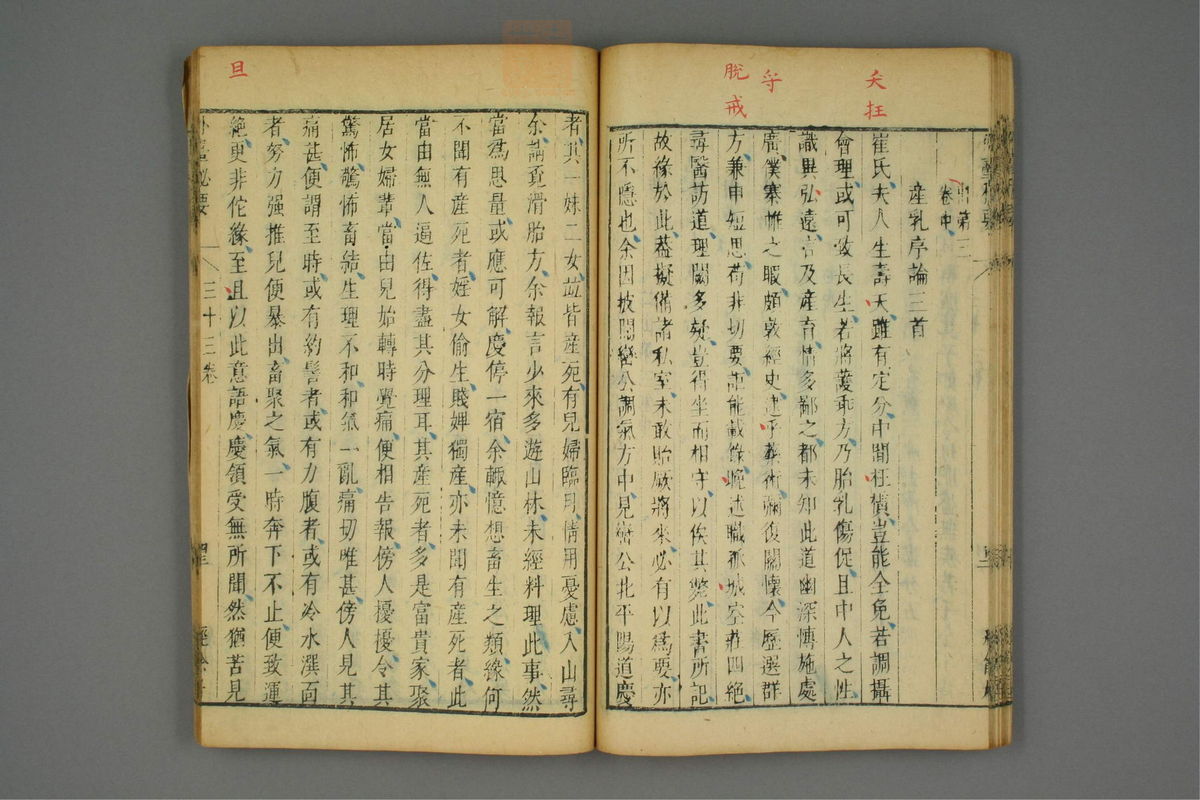 夭枉
守
脫戒
出第三
卷中
産乳序論三首
崔氏夫人生壽夭雖有定分中間枉橫豈能全免若調攝
會理或可致長生若將護乖方乃胎乳傷促且中人之性
識異弘遠言及産育情多鄙之都未知此道幽深博施處
廣僕寨帷之暇頗敦經史逮乎藥術彌復關懷今歷選群
方兼申短思苟非切要詎能載錄晚述職孤城空莊四絕
尋醫訪道理闕多疑豈得坐而相守以俟其斃此書所記
故緣於此葢擬備諸私室未敢貽厥將來必有以爲要亦
所不隱也余因披閱巒公調氣方中見巒公北平陽道慶
旦
者其一妹二女竝皆産死有兒婦臨月情用憂慮入山尋
余請覓滑胎方余報言少來多遊山林未經料理此事然
當爲思量或應可解慶停一宿余輙憶想畜生之類緣何
不聞有産死者婬女偷生賤婢獨産亦未聞有産死者此
當由無人逼佐得盡其分理耳其産死者多是富貴家聚
居女婦輩當由兒始轉時覺痛便相告報傍人擾擾令其
驚怖驚怖畜結生理不和和氣一亂痛切唯甚傍人見其
痛甚便謂至時或有約髻者或有力腹者或有冷水潠面
者努力强推兒便暴出畜聚之氣一時奔下不止便致運
絶更非佗緣至且以此意語慶慶領受無所聞然猶苦見
外臺秘要
三十三卷